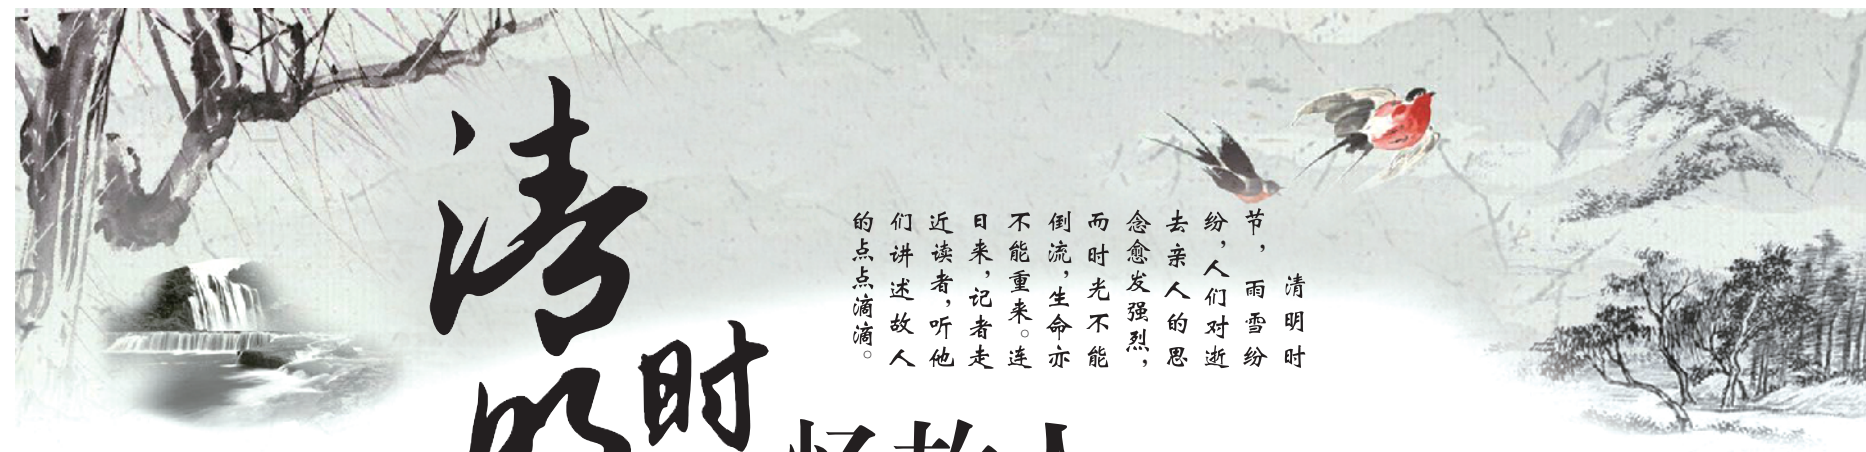 清明
时
清明时
节，雨雪纷
纷，人们对逝
去亲人的思
念愈发强烈，
而时光不能
倒流，生命亦
不能重来。连
日来，记者走
近读者，听他
们讲述故人
的点点滴滴。